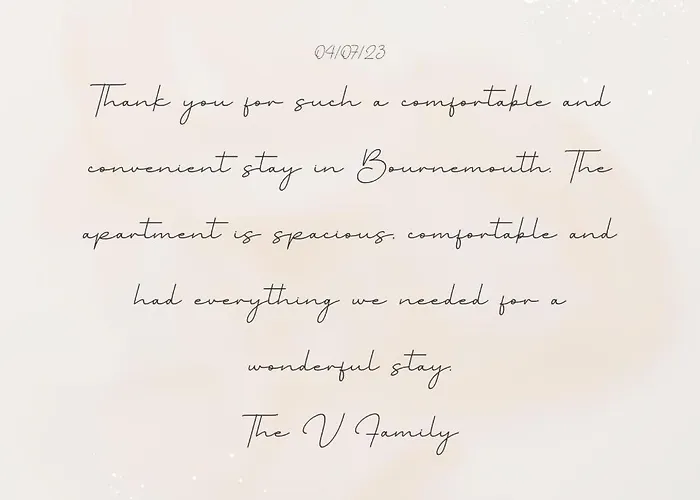 04/07/23
Thank you for such a comfortable and
convenient stay in Bournemouth. The
apartment is spacious, comfortable and
had everything we needed for a
wonderful stay.
The V Family